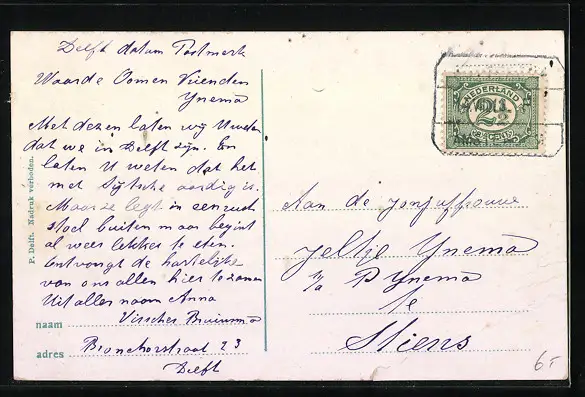 Delft datum Postmerk
Waarde Oomen Vrienden
Ynema
Met dezen laten wij U weten
dat we in Delft zijn. En
laten U weten dat het
met Sytsche aardig is.
Maar ze legt in een zuch
stoel buiten maar begint
al weer lekker te eten.
Ontvangt de hartelijke
van ons allen hier te zamen
Uit aller naam Anna
naam Visscher Bruinsma
adres Bronchorstraat 23
Delft
P. Delft. Nadruk verboden.
NEDERLAND
2½
CENT
Aan de Jonjuffrouw
Jeltje Ynema
p/a P Ynema
te
Stiens
6.-